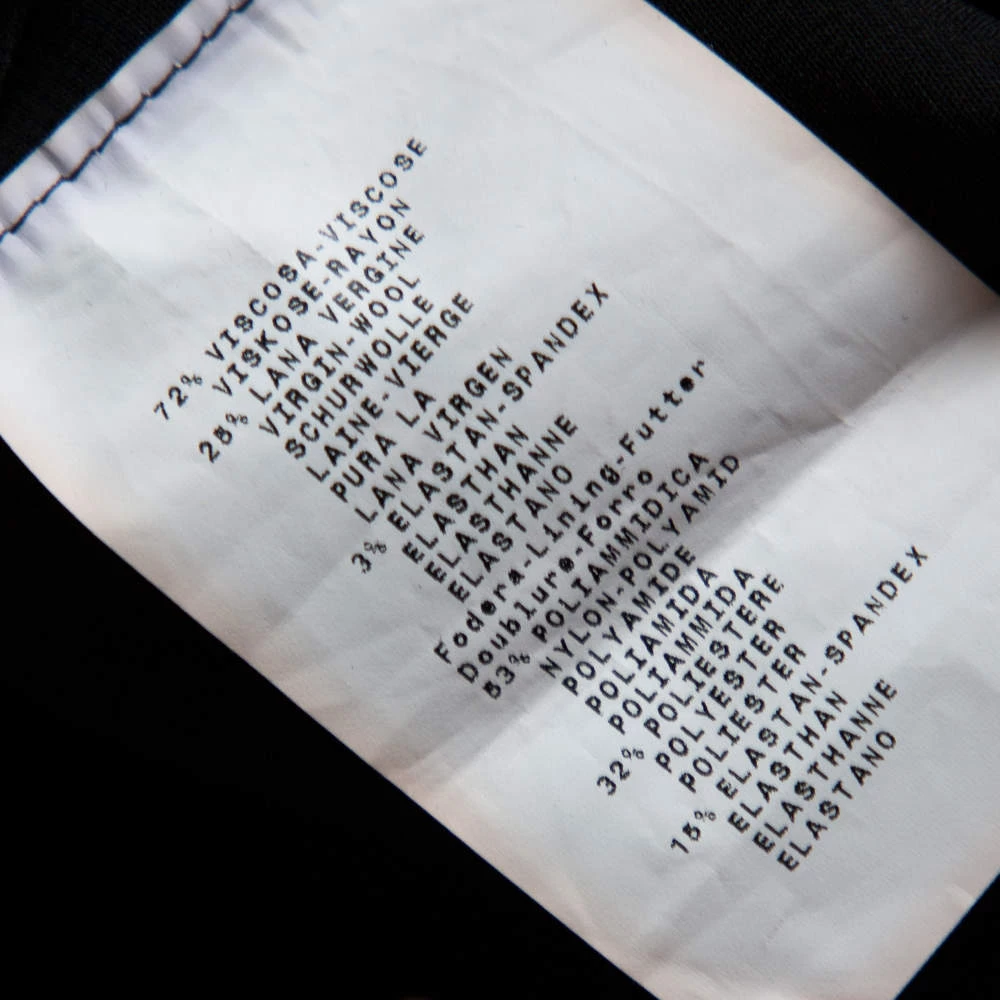 72% VISCOSA-VISCOSE
VISKOSE-RAYON
25% LANA VERGINE
VIRGIN-WOOL
SCHURWOLLE
LAINE-VIERGE
PURA LA
LANA VIRGEN
3% ELASTAN-SPANDEX
ELASTHAN
ELASTHANNE
ELASTANO
Fodera-Lining-Futter
Doublure-Forro
53% POLIAMMIDICA
NYLON-POLYAMID
POLYAMIDE
POLIAMIDA
POLIAMMIDA
32% POLIESTERE
POLYESTER
POLIESTER
15% ELASTAN-SPANDEX
ELASTHAN
ELASTHANNE
ELASTANO